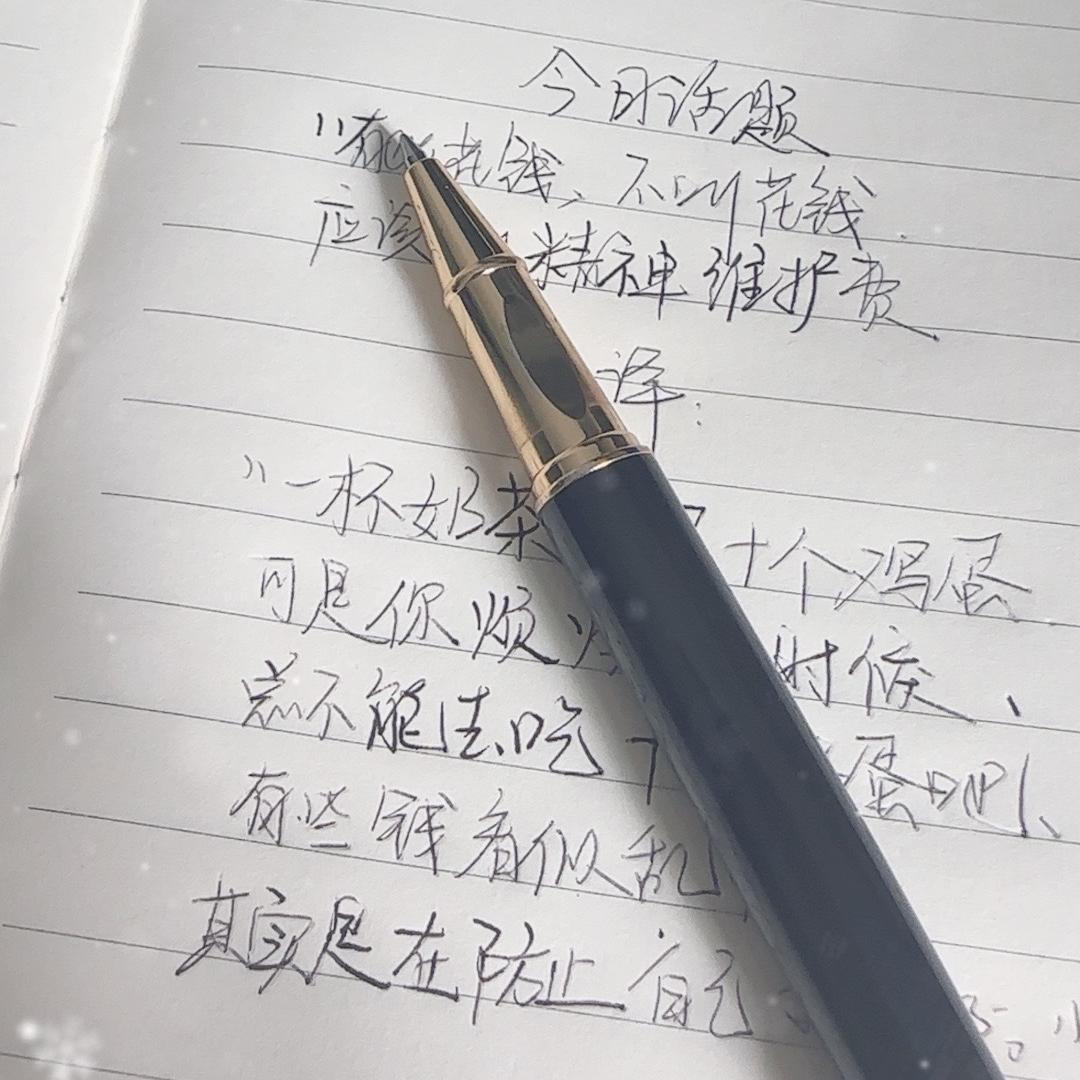 今日话题
"有些花钱、不叫花钱
应该 精神维护费
译:
"一杯奶茶 十个鸡蛋
可是你烦 时候、
总不能去吃 蛋吧!、
有些钱看似乱
其实是在防止自己 。"